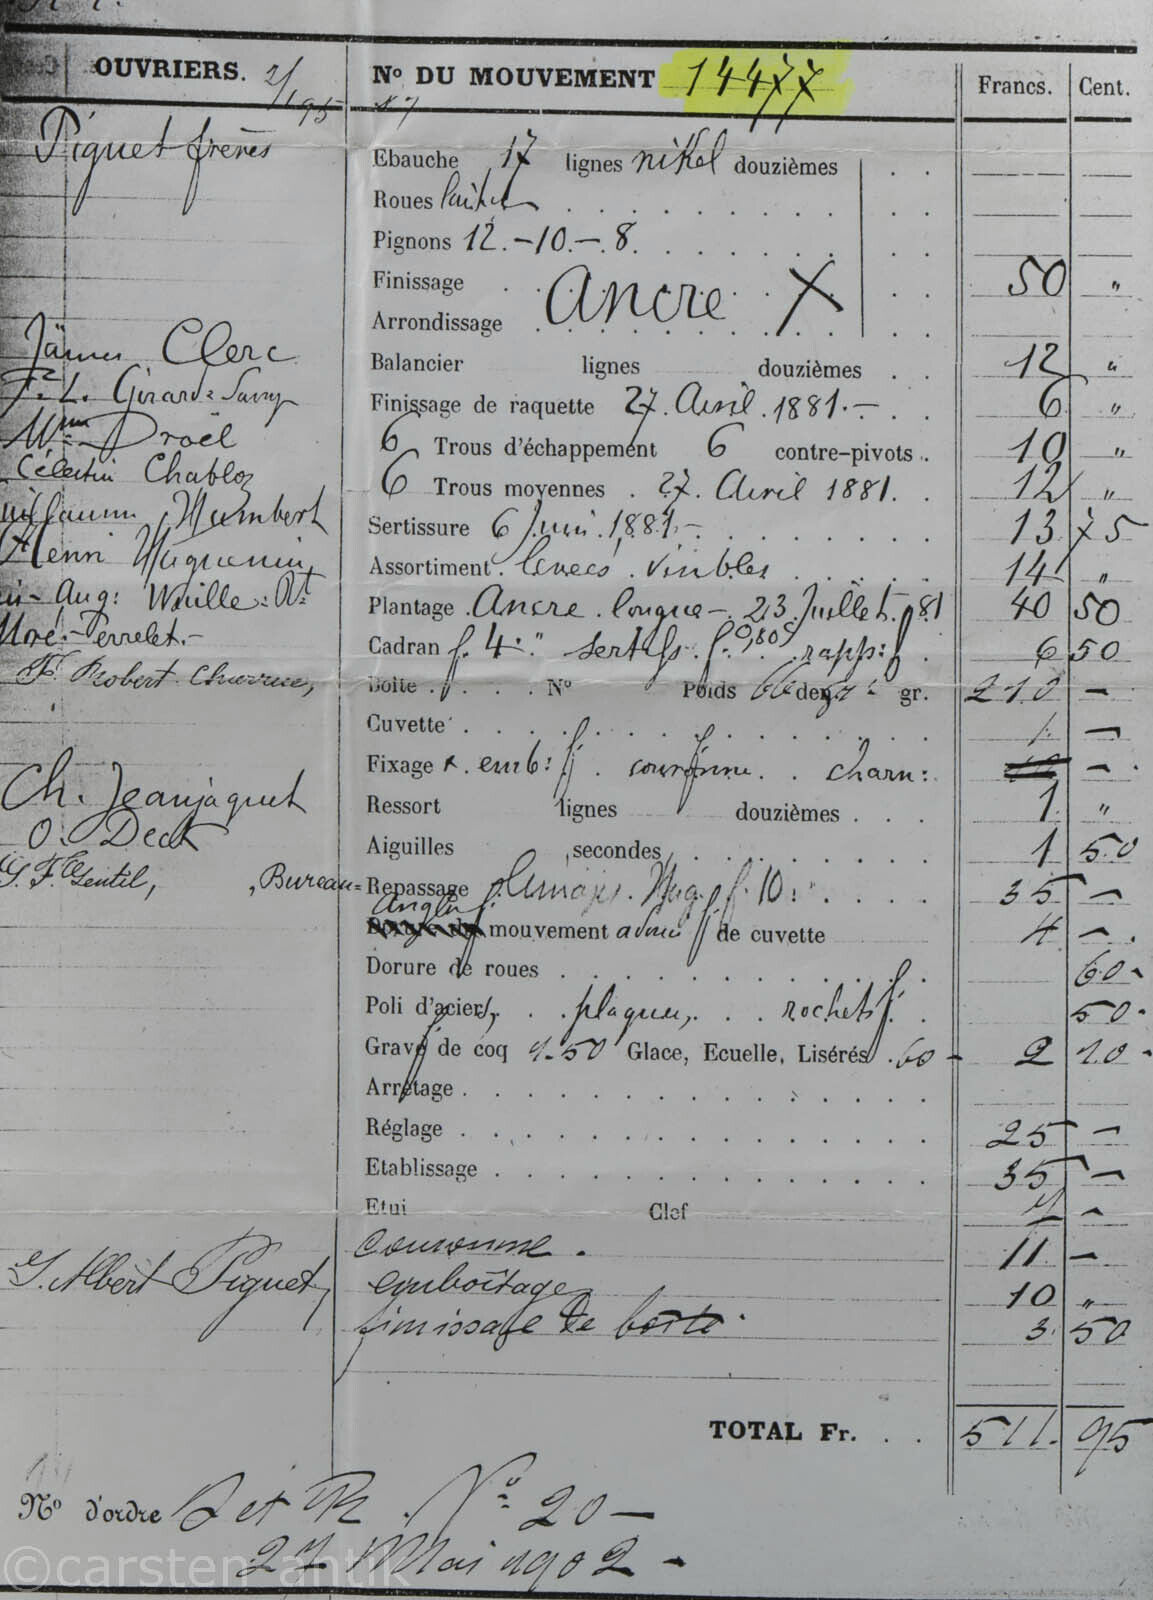 OUVRIERS. Nº DU MOUVEMENT 14477 Francs. Cent.
Piguet frères
Ebauche 17 lignes nikel douzièmes
Roues
Pignons 12.-10.-.8.
Finissage Ancre X 50 "
Arrondissage
James Clerc
Balancier lignes douzièmes 12 "
Girard
Finissage de raquette 27. Avril. 1881.- 6 "
Mme Droël
6 Trous d'échappement 6 contre-pivots 10 "
Célestin Chabloz
6 Trous moyennes 27. Avril 1881. 12 "
Humbert
Sertissure 6 Juin. 1881.- 13 75
Henri Huguenin
Assortiment levées visibles 14 "
Aug: Wuille
Plantage Ancre longue - 23 Juillet 81 40 50
Perrelet.-
Cadran f. 4." f. 0,80c rapp: f. 6 50
Robert Charrue,
Boîte Nº Poids gr. 210 -
Cuvette -
Fixage emb: charn: -
Ch. Jeanjaquet
Ressort lignes douzièmes 1 "
O. Deck
Aiguilles secondes 1 50
Gentil, Bureau=
Repassage f. 10: 35 -
mouvement de cuvette 4 -
Dorure de roues 60-
Poli d'aciers, plaques, rochets 50-
Gravé de coq 1.50 Glace, Ecuelle, Lisérés .60- 2 10-
Arrêtage
Réglage 25 -
Etablissage 35 -
Etui Clef -
couronne. 11 -
Albert Piguet,
emboîtage 10 "
finissage de boîte. 3. 50
TOTAL Fr. 511. 95
Nº d'ordre et R. Nº 20-
27 Mai 1902-
©carsten-antik